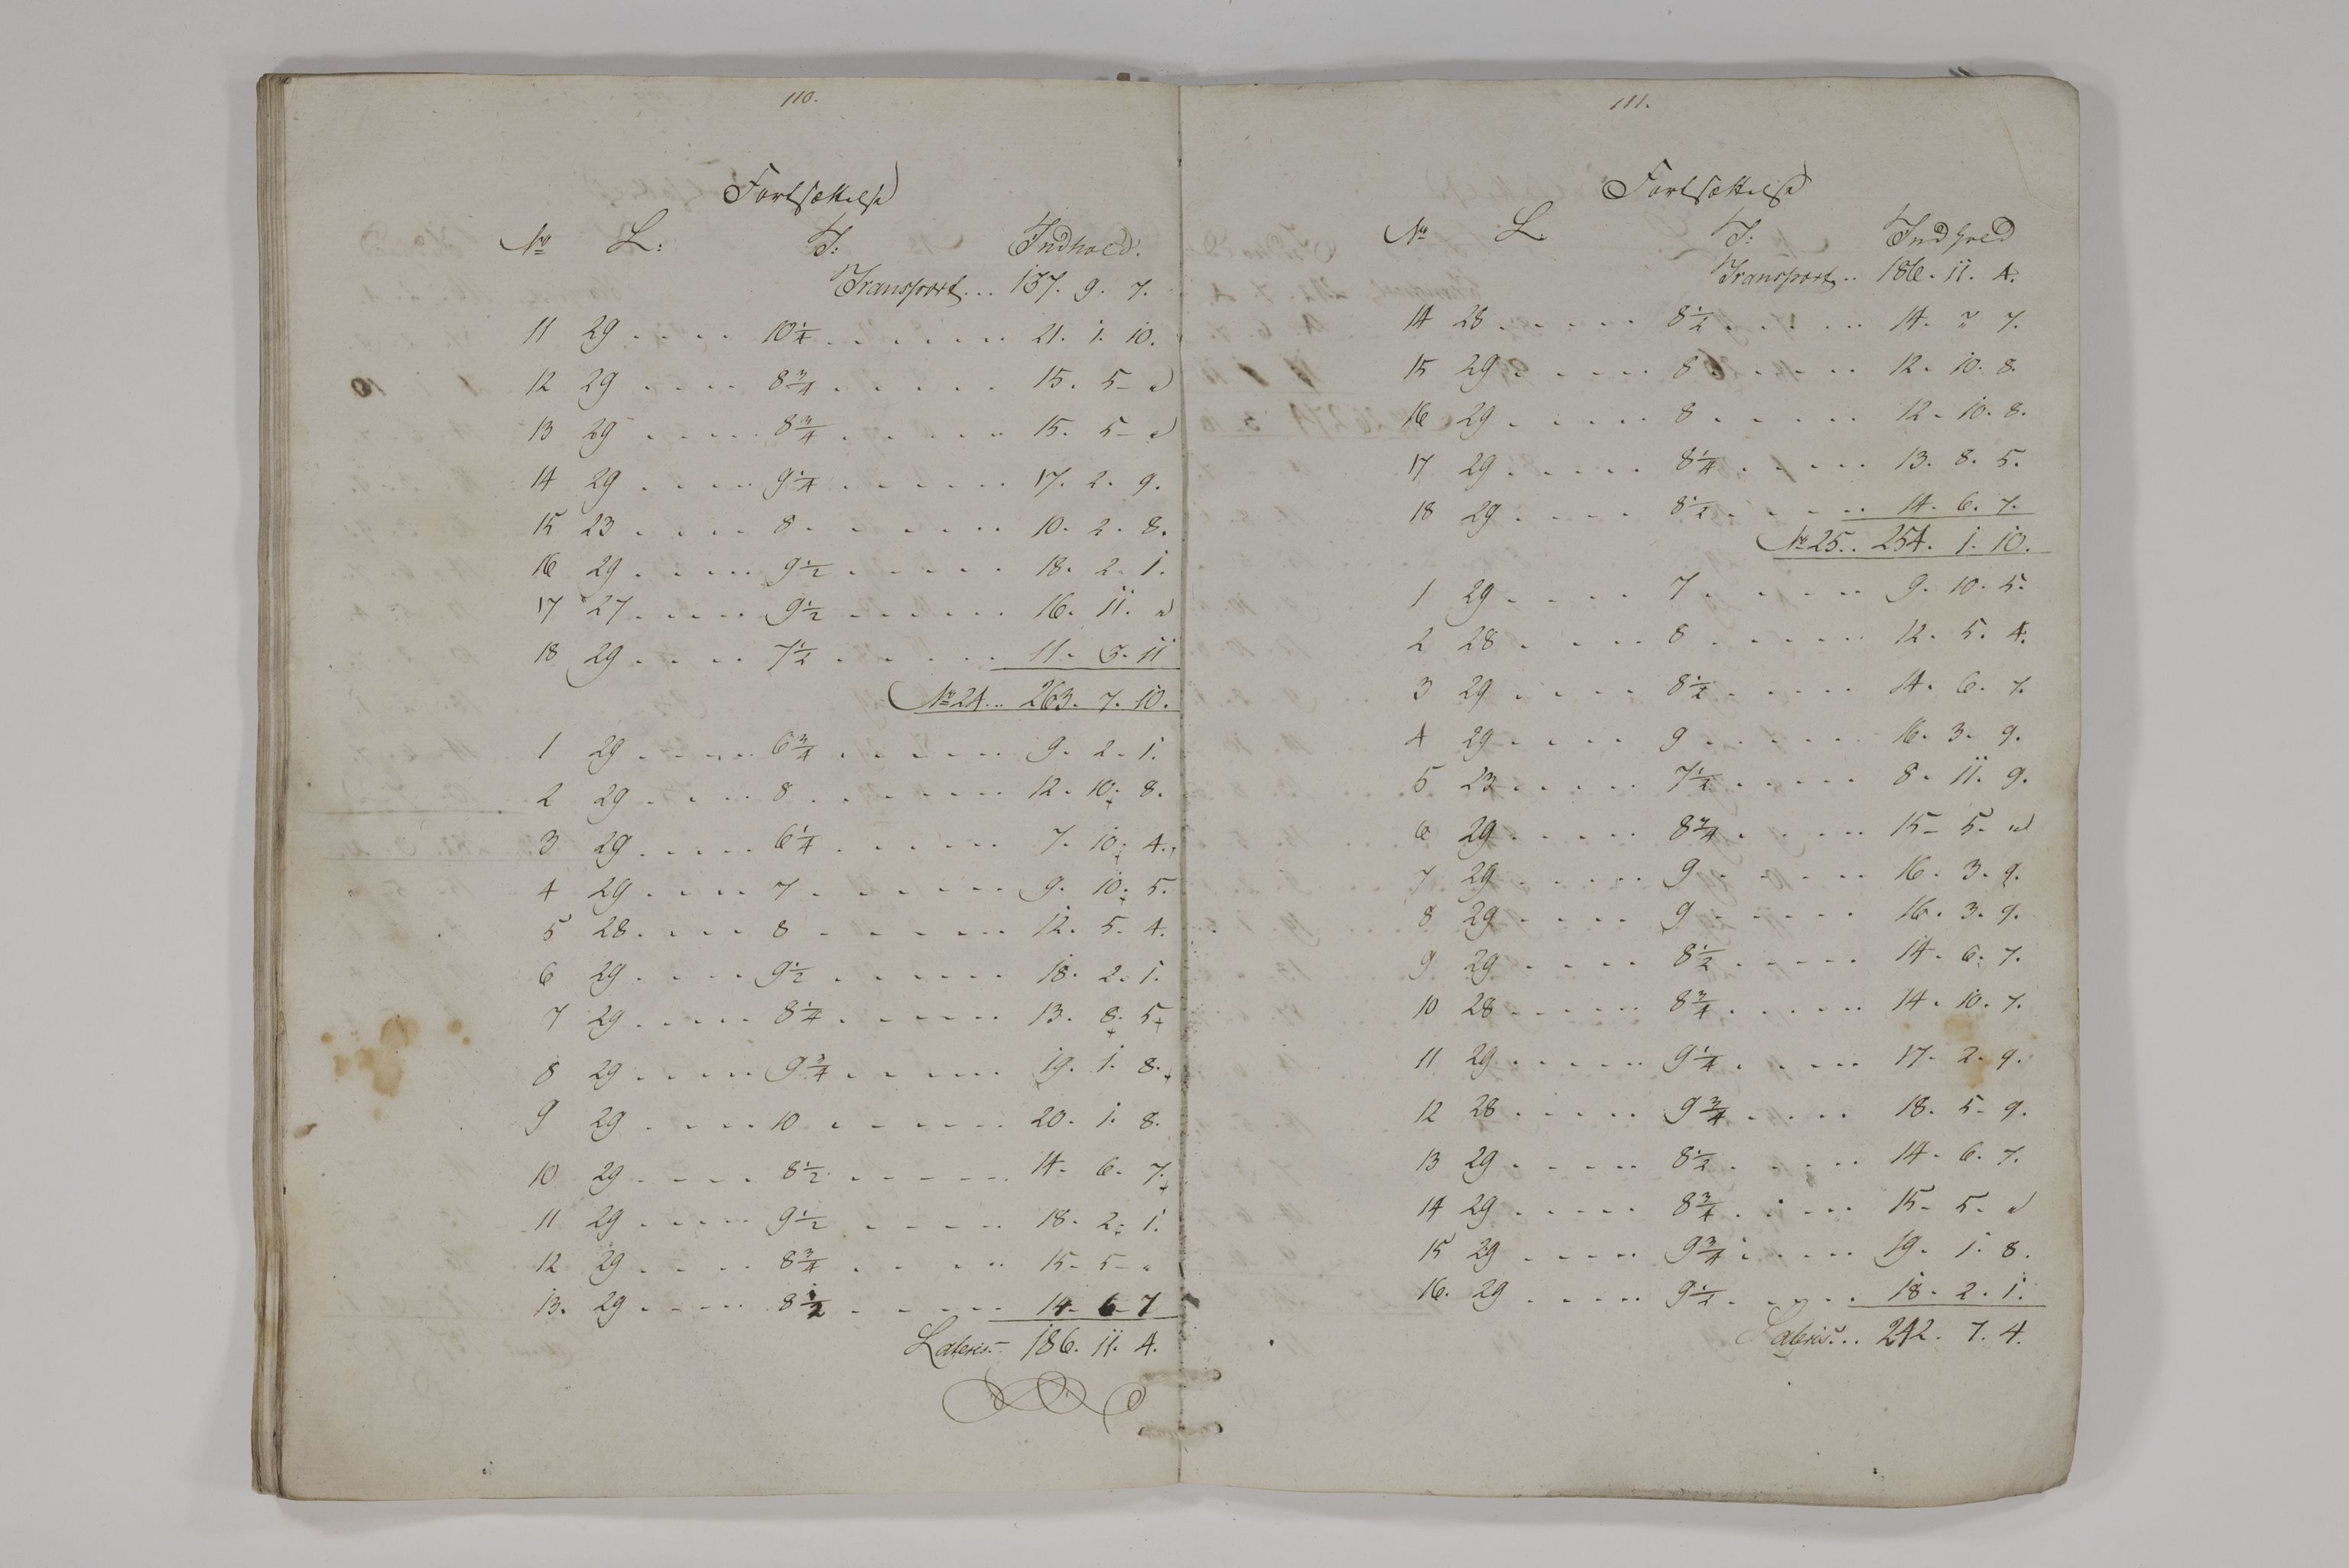 110.
Fortsættelse
No L: T: Indhold.
Transport... 137. 9. 7.
11 29 .... 10 1/4 ...... 21. 1. 10.
12 29 .... 8 3/4 ..... 15. 5 - "
13 29 .... 8 3/4 ..... 15. 5 - "
14 29 .... 9 1/4 ...... 17. 2. 9.
15 23 .... 8 ...... 10. 2. 8.
16 29 .... 9 1/2 ..... 18. 2. 1.
17 27 .... 9 1/2 ...... 16. 11. "
18 29 .... 7 1/2 ...... 11. 3. 11
No 24... 263. 7. 10.
1 29 .... 6 3/4 ...... 9. 2. 1.
2 29 .... 8 ...... 12. 10. 8.
3 29 .... 6 1/4 ...... 7. 10. 4.
4 29 .... 7 ...... 9. 10. 5.
5 28 .... 8 ...... 12. 5. 4.
6 29 .... 9 1/2 ...... 18. 2. 1.
7 29 .... 8 1/4 ...... 13. 8. 5
8 29 .... 9 3/4 ...... 19. 1. 8.
9 29 .... 10 ...... 20. 1. 8.
10 29 .... 8 1/2 ...... 14. 6. 7.
11 29 .... 9 1/2 ..... 18. 2. 1.
12 29 .... 8 3/4 .... 15 - 5 - "
13. 29 .... 8 1/2 ..... 14 - 6 - 7
Lateris.- 186. 11. 4.
111.
Fortsættelse
No L. T: Indhold
Transport.. 186. 11. 4.
14 28 ..... 8 1/2 ..... 14. " 7.
15 29 ..... 8 ..... 12. 10. 8.
16 29 ..... 8 ..... 12. 10. 8.
17 29 ..... 8 1/4 ..... 13. 8. 5.
18 29 ..... 8 1/2 ..... 14. 6. 7.
No 25.. 254. 1. 10.
1 29 .... 7 ..... 9. 10. 5.
2 28 .... 8 ..... 12. 5. 4.
3 29 .... 8 1/2 ..... 14. 6. 7.
4 29 .... 9 ..... 16. 3. 9.
5 23 ..... 7 1/2 ..... 8. 11. 9.
6 29 ..... 8 3/4 ..... 15 - 5 - "
7 29 ..... 9 ..... 16. 3. 9.
8 29 .... 9 ..... 16. 3. 9.
9 29 .... 8 1/2 ..... 14. 6. 7.
10 28 ..... 8 3/4 ..... 14. 10. 7.
11 29 ..... 9 1/4 ..... 17. 2. 9.
12 28 ..... 9 3/4 .... 18. 5. 9.
13 29 ..... 8 1/2 ..... 14. 6. 7.
14 29 ..... 8 3/4 ..... 15 - 5. "
15 29 ..... 9 3/4 ..... 19. 1. 8.
16. 29 .... 9 1/2 ..... 18. 2. 1.
Lateris... 242. 7. 4.